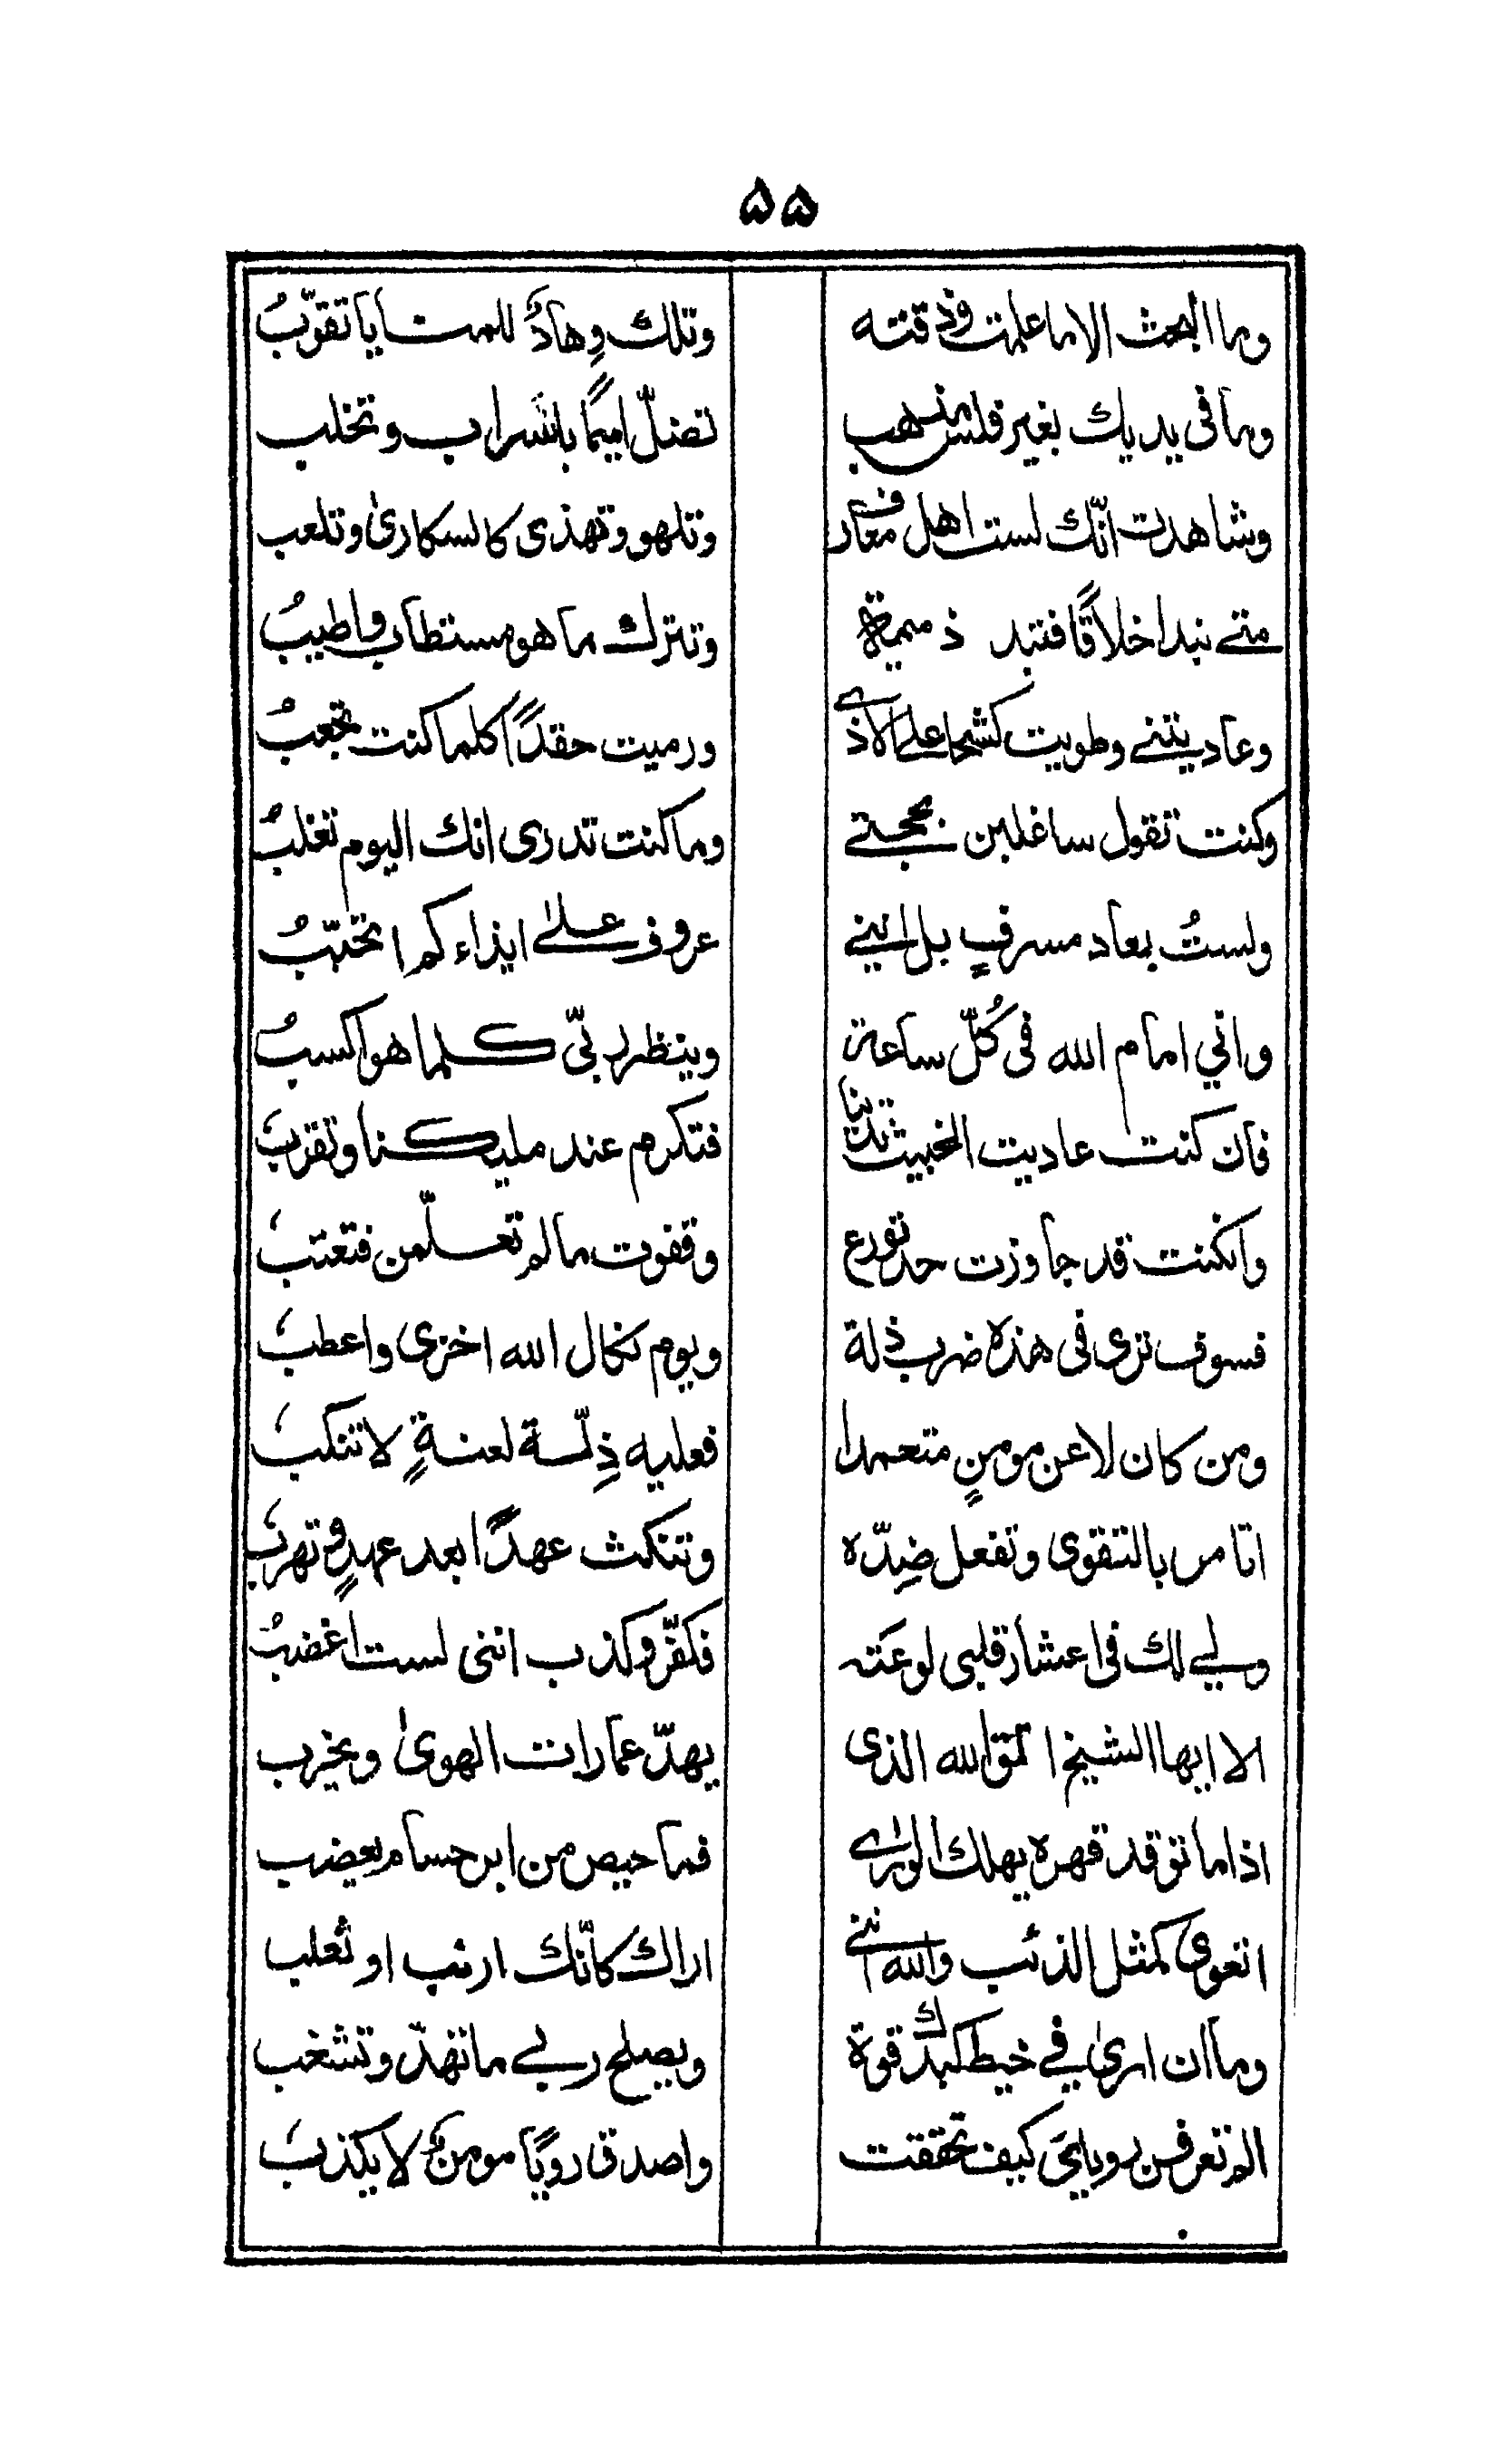 ۵۵
وما البحث الا ما علمت وذقته وتلك وهادٌ للمنايا تقوّبُ
وما فى يديك بغير فلس مذهب تضلّ اميمًا بالشراب وتخلب
وشاهدت انّك لست اهل معارف وتلهو وتهذى كالسكارىٰ وتلعب
متے نبد اخلاقًا فتبد ذميمة وتترك ما هو مستطاب واطيبُ
وعاديتنے وطويت كشحا علے الاذے ورميت حقدًا كلما كنت تجعبُ
وكنت تقول ساغلبن بحجتے وما كنت تدرى انك اليوم تغلبُ
ولستُ بعاد مسرفٍ بل اننے عروف علےٰ ايذاءكم اتحبّبُ
واني امام الله فى كُلّ ساعة وينظر ربّي كلما هو اكسبُ
فان كنت عاديت الخبيث تدينا فتكرم عند مليكنا وتقربَ
وانكنت قد جاوزت حد تورع وقفوت مالم تعلّمن فتعتبَ
فسوف ترى فى هذه ضرب ذلة ويوم نكال الله اخزى واعطبَ
ومن كان لاعن مومنٍ متعمدا فعليه ذِلّة لعنةٍ لا تنكبَ
اتامر بالتقوى وتفعل ضِدّه وتنكث عهدًا بعد عهدٍ وتهربَ
ولے لك فى اعشار قلبى لوعَته فكفّر وكذب اننى لست اغضبُ
الا ايها الشيخ اتق الله الذى يهدّ عمارات الهوىٰ ويخرب
اذا ما توقد قهره يهلك الورٰے فما حيص من ابر حسام يعضب
اتعوى كمثل الذئب والله اننے اراك كانّك ارنب او ثعلب
وما ان ارىٰ فے خيط كبدك قوة ويصلح ربے ما تهدّ وتشغب
الم تعرفن روياىَ كيف تحققت واصدق رويًا مومن لا يكذبَ